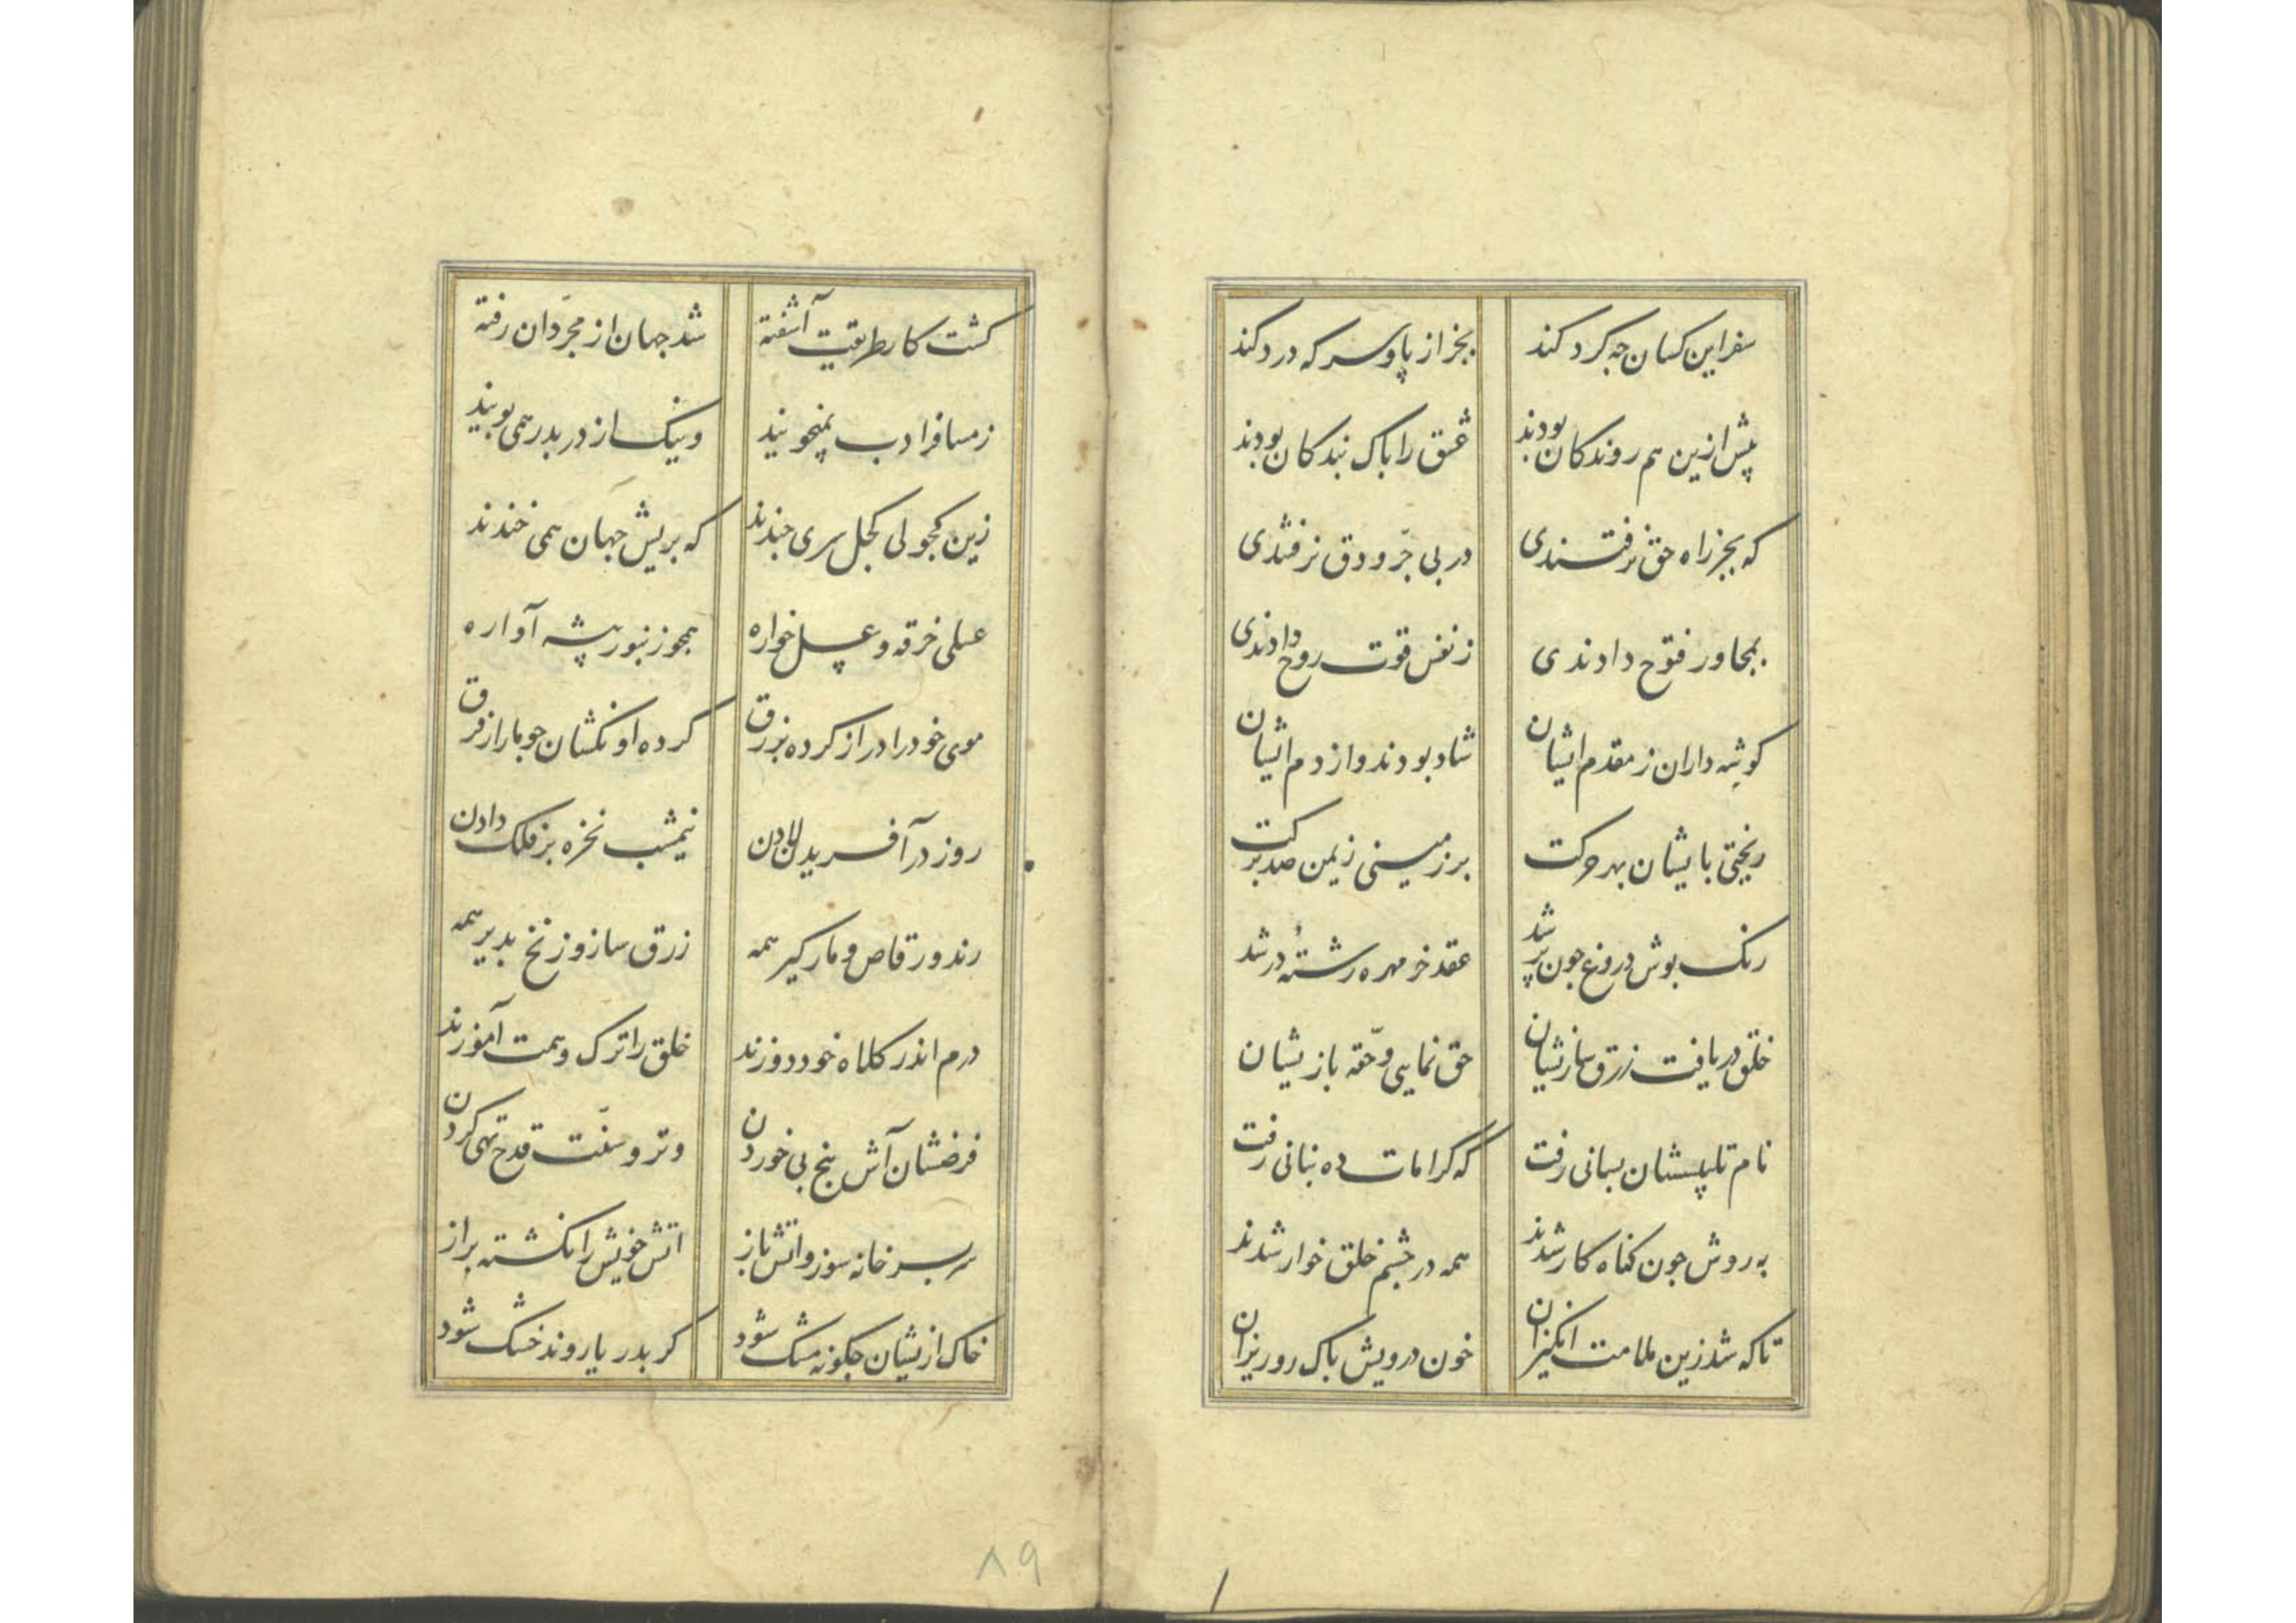 سفر این کسان چه کرد کند بجز از پا و سر که درد کند
پیش ازین هم روندکان بودند عشق را پاک بندکان بودند
که بجز راه حق نرفتندی در پی جرّ و دق نرفتندی
بمجاور فتوح دادندی ز نفس قوت روح دادندی
کوشه داران ز مقدم ایشان شاد بودند و از دم ایشان
ریختی با یشان بهر حرکت بر زمینی ز یمن صد برکت
رنک پوش دروغ جون پر شد عقد خر مهره رشتهٔ در شد
خلق دریافت زرق سازیشان حق نمایی و حقّه بازیشان
نام تلبیسشان بسانی رفت که کرامات ده بنانی رفت
به روش جون کناه کار شدند همه در چشم خلق خوار شدند
تا که شد زین ملامت انکیزان خون درویش پاک رو ریزان
کشت کار طریقت آشفته شد جهان از مجرّدان رفته
ز مسافر ادب نمیجویند وینک از در بدر همی بویند
زین کجولی کجل سری جندند که بریش جهان همی خندند
عسلی خرقه و عسل خواره همجو زنبور بیشه آواره
موی خود را دراز کرده بزرق کرده اونکشان جو مار از فرق
روز در آفرید لادن نیمشب نخره بر فلک دادن
رند و رقاص و مارکیر همه زرق ساز و زنخ بدیر همه
درم اندر کلاه خود دوزند خلق را ترک و همت آموزند
فرضشان آش بنج پی خوردن وتر و سنّت قدح تهی کردن
سر بسر خانه سوز و اتش باز اتش خویش را نکشته براز
خاک ازیشان چکونه مشک شود کر بدریا روند خشک شود
۸۹